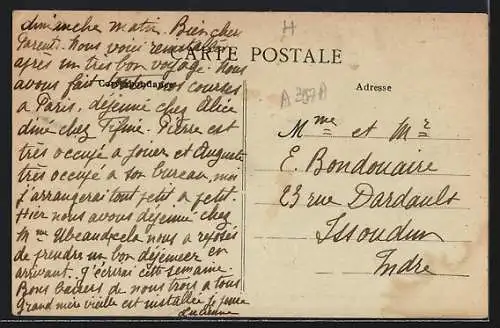 dimanche matin. Bien chers
Parents. Nous voici réinstallés
après un très bon voyage. Nous
avons fait nos courses
à Paris, déjeuné chez Alice
diné chez Fifine. Pierre est
très occupé a jouer et Auguste
très occupé a son bureau, moi
j'arrangerai tout petit a petit.
Hier nous avons déjeuné chez
Mme cela nous a reposés
de prendre un bon déjeuner en
arrivant. J'écrirai cette semaine.
Bons baisers de nous trois a tous
Grand mère vieille est installée je pense
Lucienne
H
CARTE POSTALE
Correspondance
A 357 A
Adresse
Mme et Mr
E. Bondouaire
23 rue Dardault
Issoudun
Indre